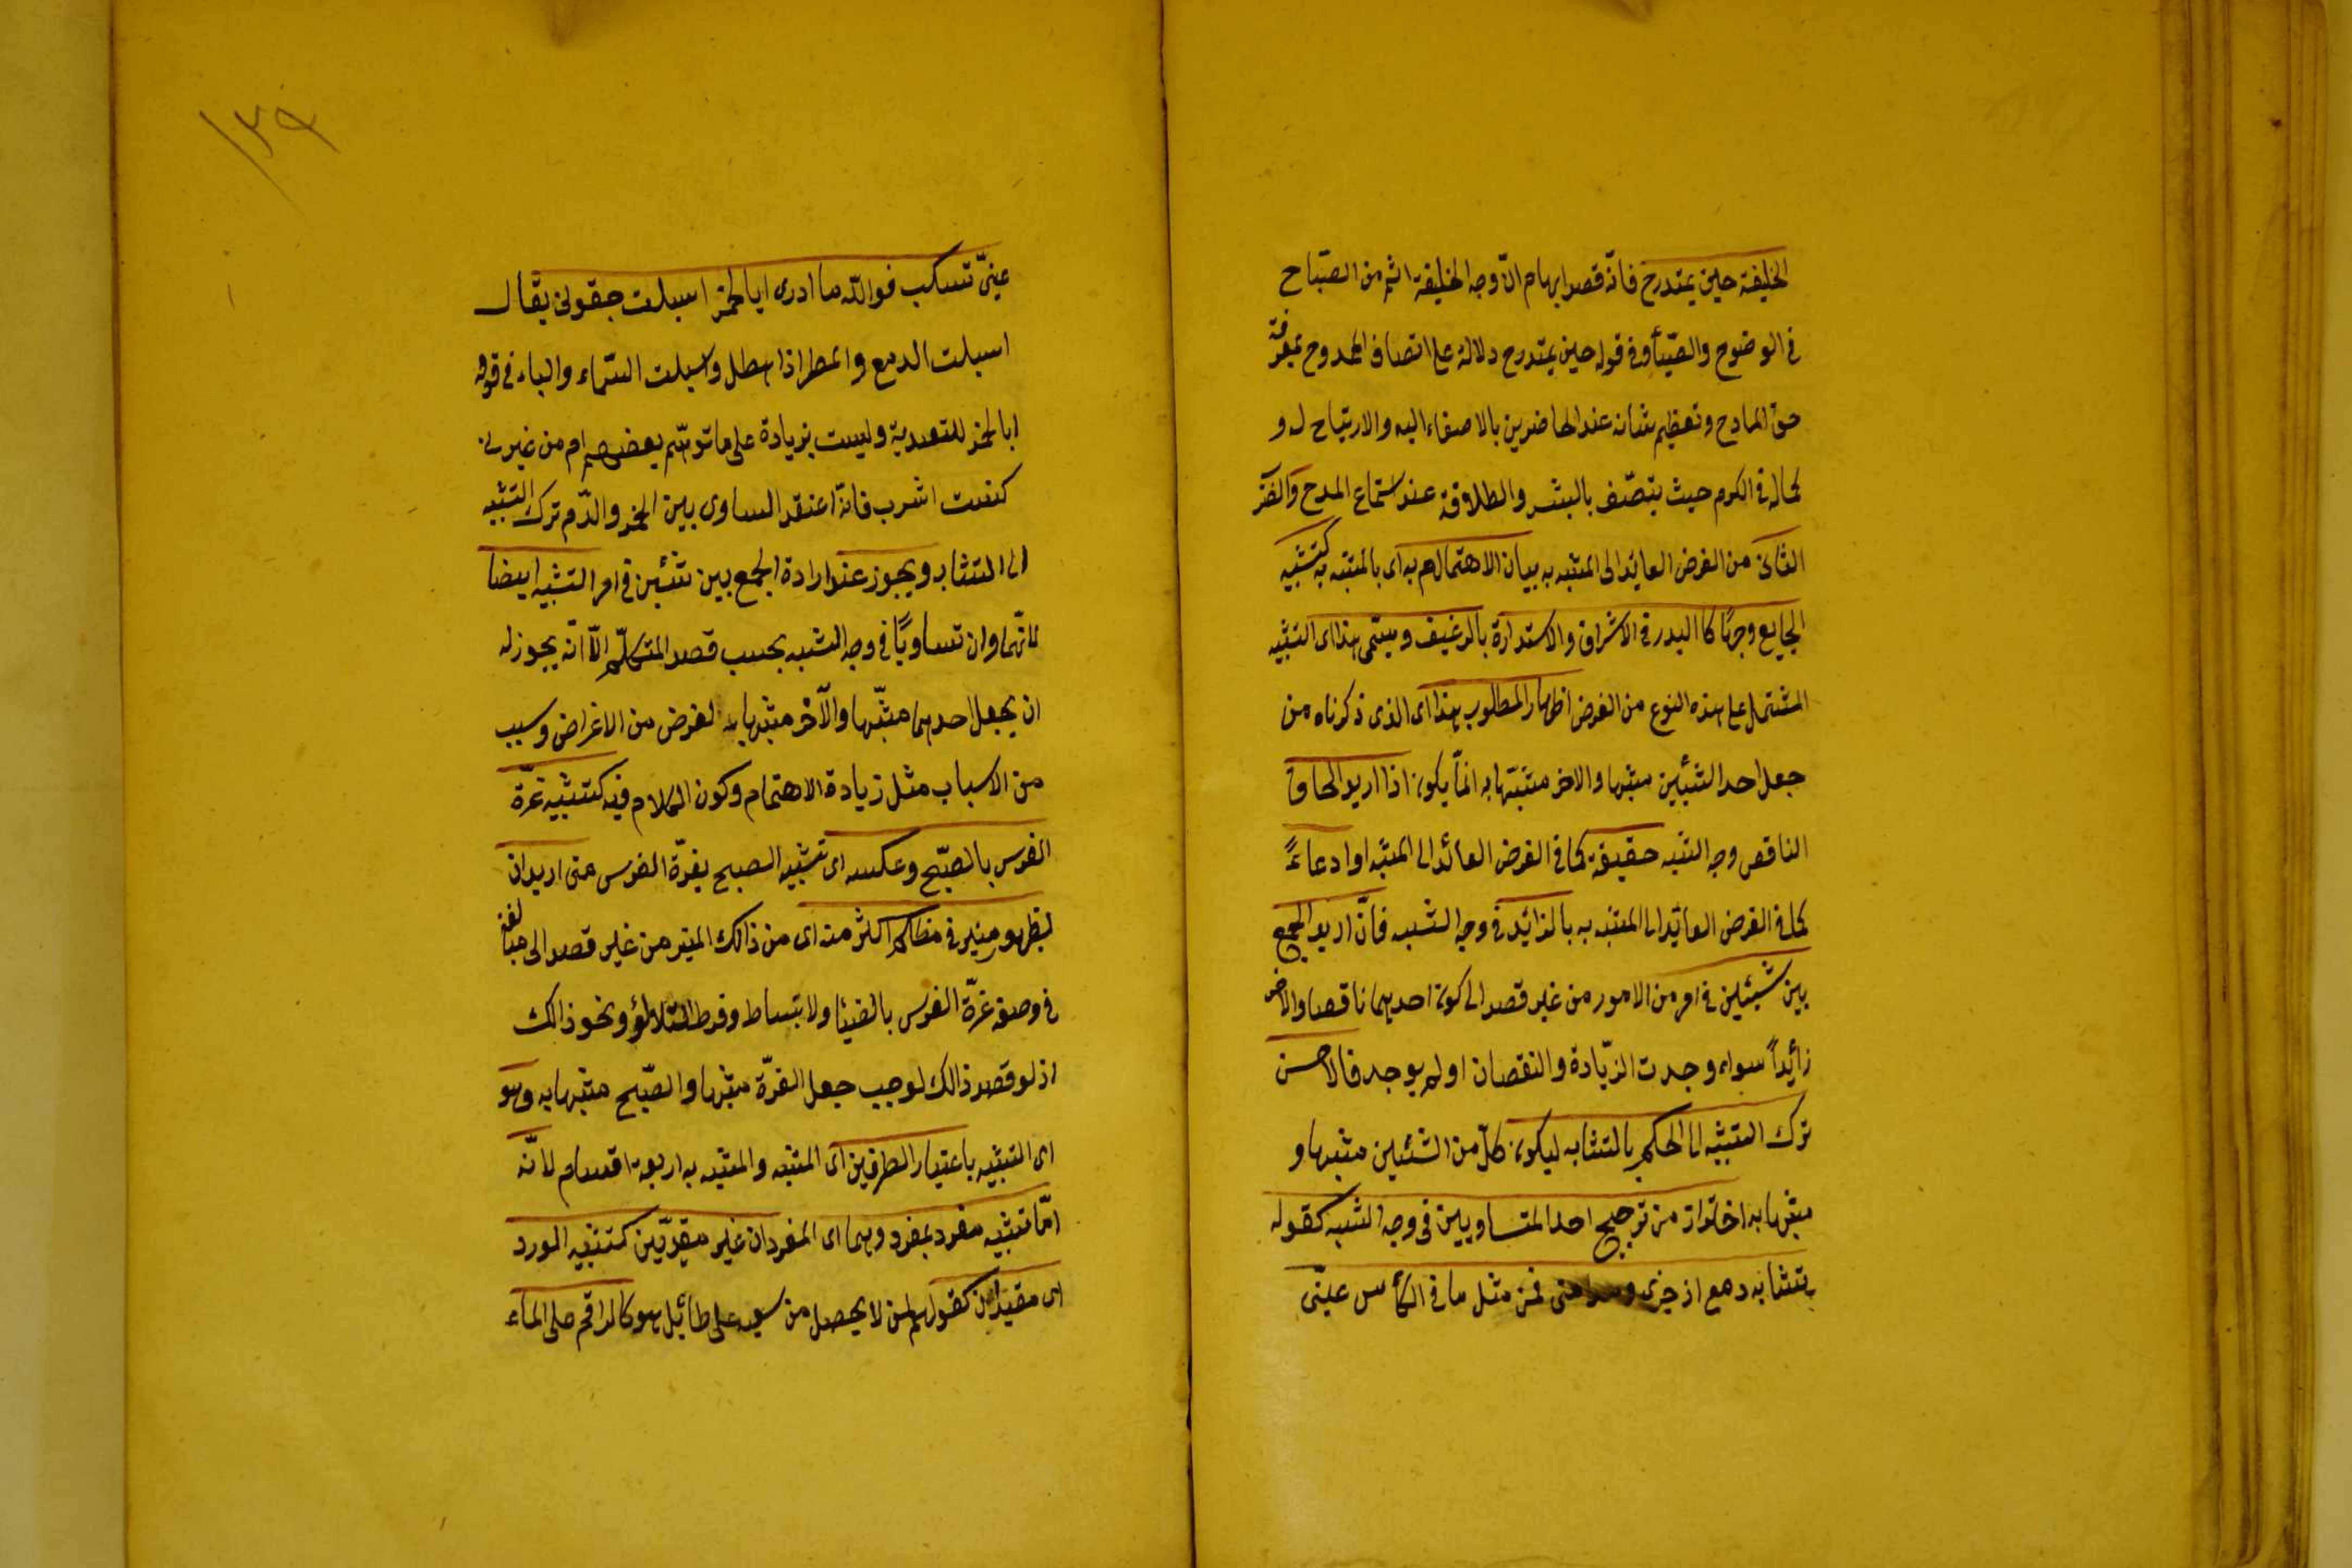 الخليفة حين يمتدح فانّه قصد ايهام انّ وجه الخليفة اتم من الصّباح
فى الوضوح والضّيأ وفى قوله حين يمتدح دلالة على اتصاف الممدوح بمعرفة
حق المادح وتعظيم شانه عند الحاضرين بالاصغاء اليه والارتياح له و
كماله فى الكرم حيث يتصّف بالبشر والطلاقة عند استماع المدح والضّر
الثانى من الغرض العائد الى المشبه به بيان الاهتمام به اى بالمشبه به كتشبيه
الجايع وجهًا كا البدر فى الاشراق والاستدارة بالرغيف ويسمّى هذا اى التشبيه
المشتمل على هذه النوع من الغرض اظهار المطلوب هذا اى الذى ذكرناه من
جعل احد الشيئين مشبها والاخر مشبّها به انمّا يكون اذا اريد الحاق
الناقص وجه الشبه حقيقة كما فى الغرض العائد الى المشبه او ادعاءً
كما فى الغرض العائد الى المشبه به بالزائد فى وجه الشبه فانّ اريد الجمع
بين شيئين فى امر من الامور من غير قصد الى كون احدهما ناقصا والاخر
زائداً سواء وجدت الزّيادة والنقصان او لم يوجد فالاحسن
ترك التشبيه الى الحكم بالتشابه ليكون كلّ من الشئين مشبها و
مشبها به احترازا من ترجيح احد المتساويين فى وجه الشبه كقوله
يتشابه دمع اذ جرى ومدامتى فمن مثل ما فى الكأس عينّى
عينّى تسكب فوالله ما ادرى ابا لخمر اسبلت جفونى يقال
اسبلت الدمع والمطر اذا هطل واسبلت السّماء والباء فى قوله
ابا لخمر للتعدية وليست بزيادة على ما توهّم بعضهم ام من غيرتى
كنت اشرب فانّه اعتقد التساوى بين الخمر والدّم ترك التشبيه
الى التشابه ويجوز عند ارادة الجمع بين شئين فى امر التشبيه ايضا
لانّهما وان تساويًا فى وجه الشبه بحسب قصد المتكلّم الّا انّه يجوز له
ان يجعل احدهما مشّبها والآخر مشبها به لغرض من الاغراض وسبب
من الاسباب مثل زيادة الاهتمام وكون الكلام فيه كتشبيه غرّة
الفرس بالصبّح وعكسه اى تشبيه الصبح بغرّة الفرس متى اريد ان
لظهور منير فى مظلم اكثر منه اى من ذالك المنير من غير قصد الى مبالغة
فى وصف غرّة الفرس بالضيا ولانبساط وفرط التلالؤ ونحو ذالك
اذ لو قصد ذالك لوجب جعل الغرّة مشبها والصّبح مشبها به وهو
اى التشبيه باعتبار الطرفين اى المشبه والمشبه به اربعة اقسام لانّه
امّا تشبيه مفرد بمفرد وهما اى المفردان غير مقيدّين كتشبيه الورد
اى مقيدان كقولهم لمن لا يحصل من سعيه على طائيل هو كالراقم على الماء
١٣٩